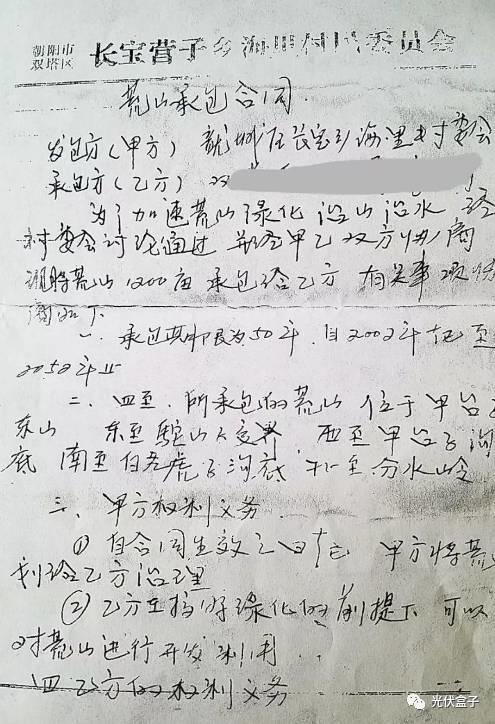 朝阳市
双塔区
长宝营子乡海里村村民委员会
荒山承包合同
发包方(甲方) 龙城区长宝乡海里村委会
承包方(乙方) 双
为了加速荒山绿化治山治水 经
村委会讨论通过 并经甲乙双方协商
现将荒山1200亩承包给乙方 有关事项协
商如下
一、承包期限为50年,自2002年起至
2052年止
二、四至.所承包的荒山 位于甲台子
东山 东至 交界,西至甲台子沟
底 南至白老虎子沟底 北至分水岭
三、甲方权利义务
① 自合同生效之日起 甲方将荒
划给乙方治理
② 乙方在搞好绿化的前提下 可以
对荒山进行开发利用..
四 乙方的权利义务
光伏盒子